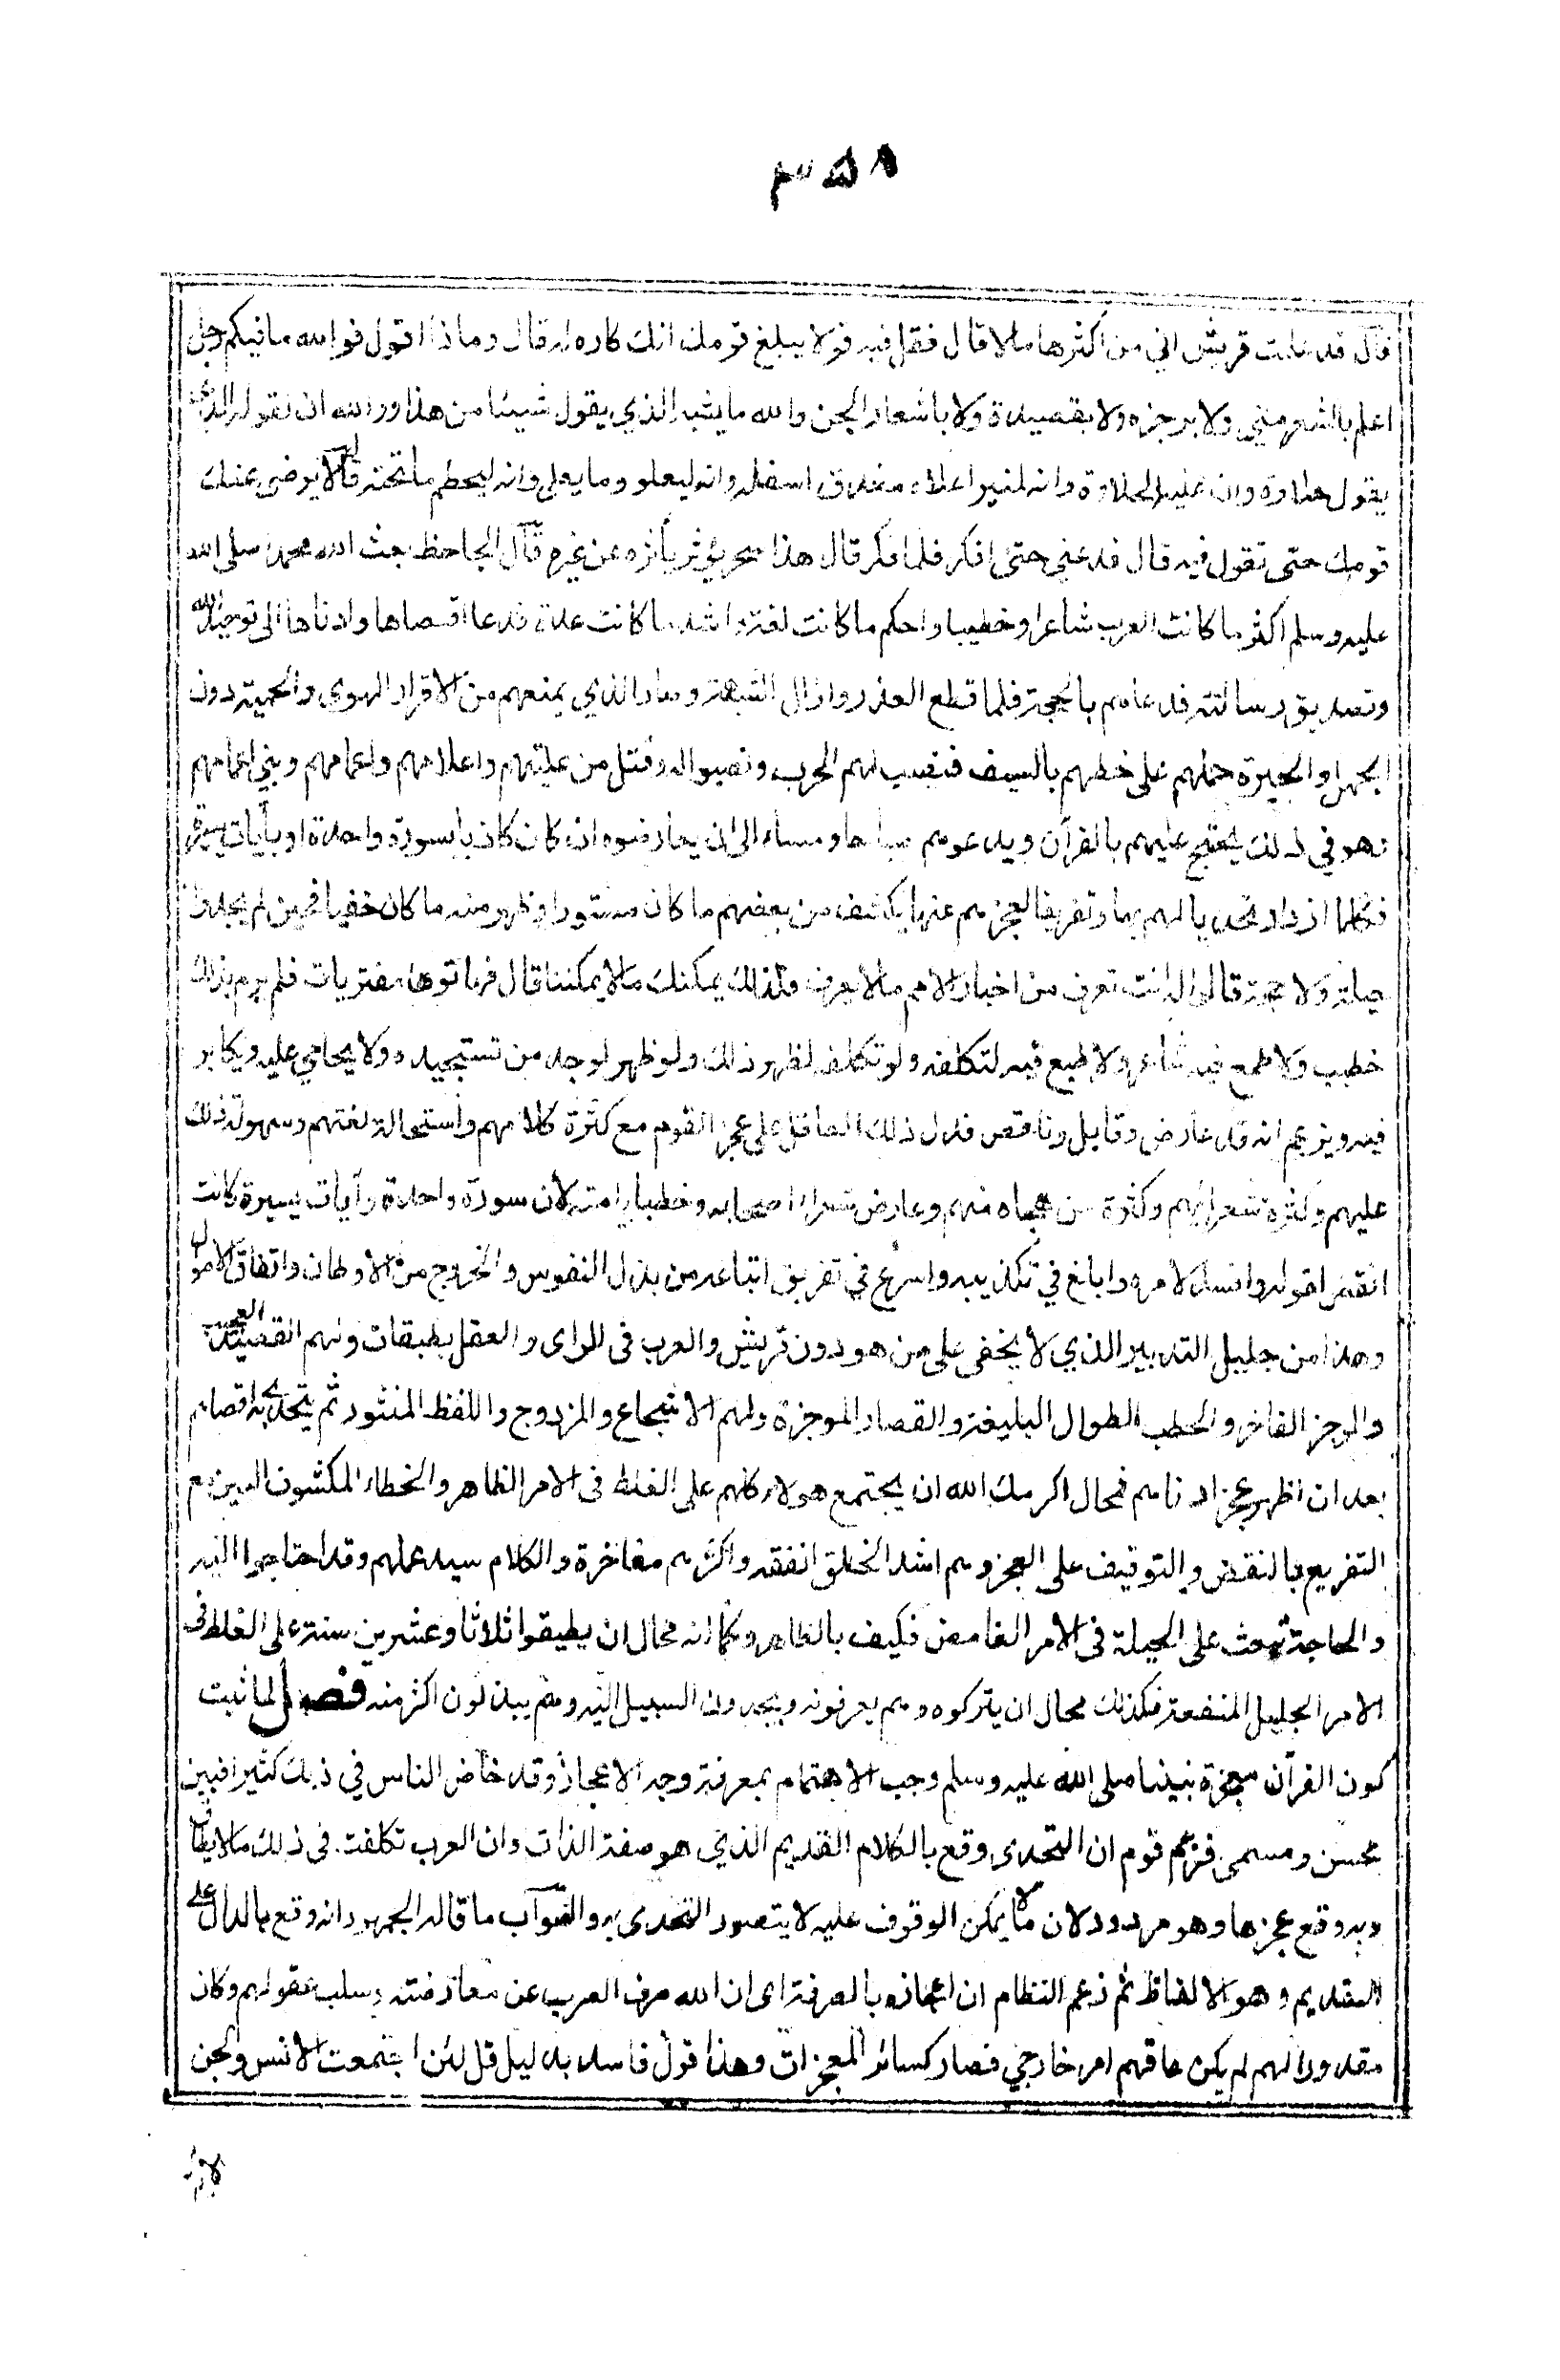 ٣٥٨
قال قد علمت قريش اني من اكثرها مالا قال فقل فيه قولا يبلغ قومك انك كاره له قال وماذا اقول فوالله ما فيكم رجل
اعلم بالشعر مني ولا برجزه ولا بقصيدة ولا باشعار الجن والله ما يشبه الذي يقول شيئا من هذا ووالله ان لقوله الذي
يقول حلاوة وان عليه لطلاوة وانه لمنير اعلاه مغدق اسفله وانه ليعلو وما يعلى وانه ليحطم ما تحته قال لا يرضى عنك
قومك حتى تقول فيه قال فدعني حتى افكر فلما فكر قال هذا سحر يؤثر يأثره عن غيره قال الجاحظ بعث الله محمدا صلى الله
عليه وسلم اكثر ما كانت العرب شاعرا وخطيبا واحكم ما كانت لغة واشد ما كانت عدة فدعا اقصاها وادناها الى توحيد الله
وتصديق رسالته فدعاهم بالحجة فلما قطع العذر وازال الشبهة وصار الذي يمنعهم من الاقرار الهوى والحمية دون
الجهل والحيرة حملهم على حظهم بالسيف فنصب لهم الحرب ونصبوا له وقتل من عليتهم واعلامهم واعمامهم وبني اعمامهم
وهو في ذلك يحتج عليهم بالقرآن ويدعوهم صباحا ومساء الى ان يعارضوه ان كان كاذبا بسورة واحدة او بآيات يسيرة
فكلما ازداد تحديا لهم بها وتقريعا لعجزهم عنها يكشف من بعضهم ما كان مستورا وظهر منه ما كان خفيا فحين لم يجدوا
حيلة ولا حجة قالوا له انت تعرف من اخبار الامم ما لا نعرف فلذلك يمكنك ما لا يمكننا قال فهاتوها مفتريات فلم يرم بذلك
خطيب ولا طمع فيه شاعر ولا طبع فيه لتكلفه ولو تكلفه لظهر ذلك ولو ظهر لوجد من تستجيده ولا يحامي عليه ويكابر
فيه ويزعم انه قد عارض وقابل وناقص فدل ذلك العاقل على عجز القوم مع كثرة كلامهم واستحالة لغتهم وسهولة ذلك
عليهم وكثرة شعرائهم وكثرة من هجاه منهم وعارض شعراء اصحابه وخطباء امته لان سورة واحدة وآيات يسيرة كانت
انقض لقوله وافسد لامره وابلغ في تكذيبه واسرع في تفريق اتباعه من بذل النفوس والخروج من الاوطان وانفاق الاموال
وهذا من جليل التدبير الذي لا يخفى على من هو دون قريش والعرب في الراى والعقل بطبقات ولهم القصيد العجيب
والرجز الفاخر والخطب الطوال البليغة والقصار الموجزة ولهم الاسجاع والمزدوج واللفظ المنثور ثم يتحدى به اقصاهم
بعد ان اظهر عجز ادناهم فمحال اكرمك الله ان يجتمع هولاء كلهم على الغلط في الامر الظاهر والخطاء المكشوف البين مع
التقريع بالنقض والتوقيف على العجز وهم اشد الخلق انفة واكثرهم مفاخرة والكلام سيد عملهم وقد احتاجوا اليه
والحاجة تبعث على الحيلة في الامر الغامض فكيف بالظاهر وكما انه محال ان يطيقوا ثلاثا وعشرين سنة على الغلط في
الامر الجليل المنفعة فكذلك محال ان يتركوه وهم يعرفونه ويجدون السبيل اليه وهم يبذلون اكثر منه فصل لما ثبت
كون القرآن معجزة نبينا صلى الله عليه وسلم وجب الاهتمام بمعرفة وجه الاعجاز وقد خاض الناس في ذلك كثيرا فبين
محسن ومسمى فزعم قوم ان التحدى وقع بالكلام القديم الذي هو صفة الذات وان العرب تكلفت في ذلك ما لا يطاق
وبه وقع عجزها وهو مردود لان ما لا يمكن الوقوف عليه لا يتصور التحدى به والصواب ما قاله الجمهور انه وقع بالدال على
القديم وهو الالفاظ ثم زعم النظام ان اعجازه بالصرفة اى ان الله صرف العرب عن معارضته وسلب عقولهم وكان
مقدورا لهم لم يكن عاقهم امر خارجي فصار كسائر المعجزات وهذا قول فاسد بدليل قل لئن اجتمعت الانس والجن